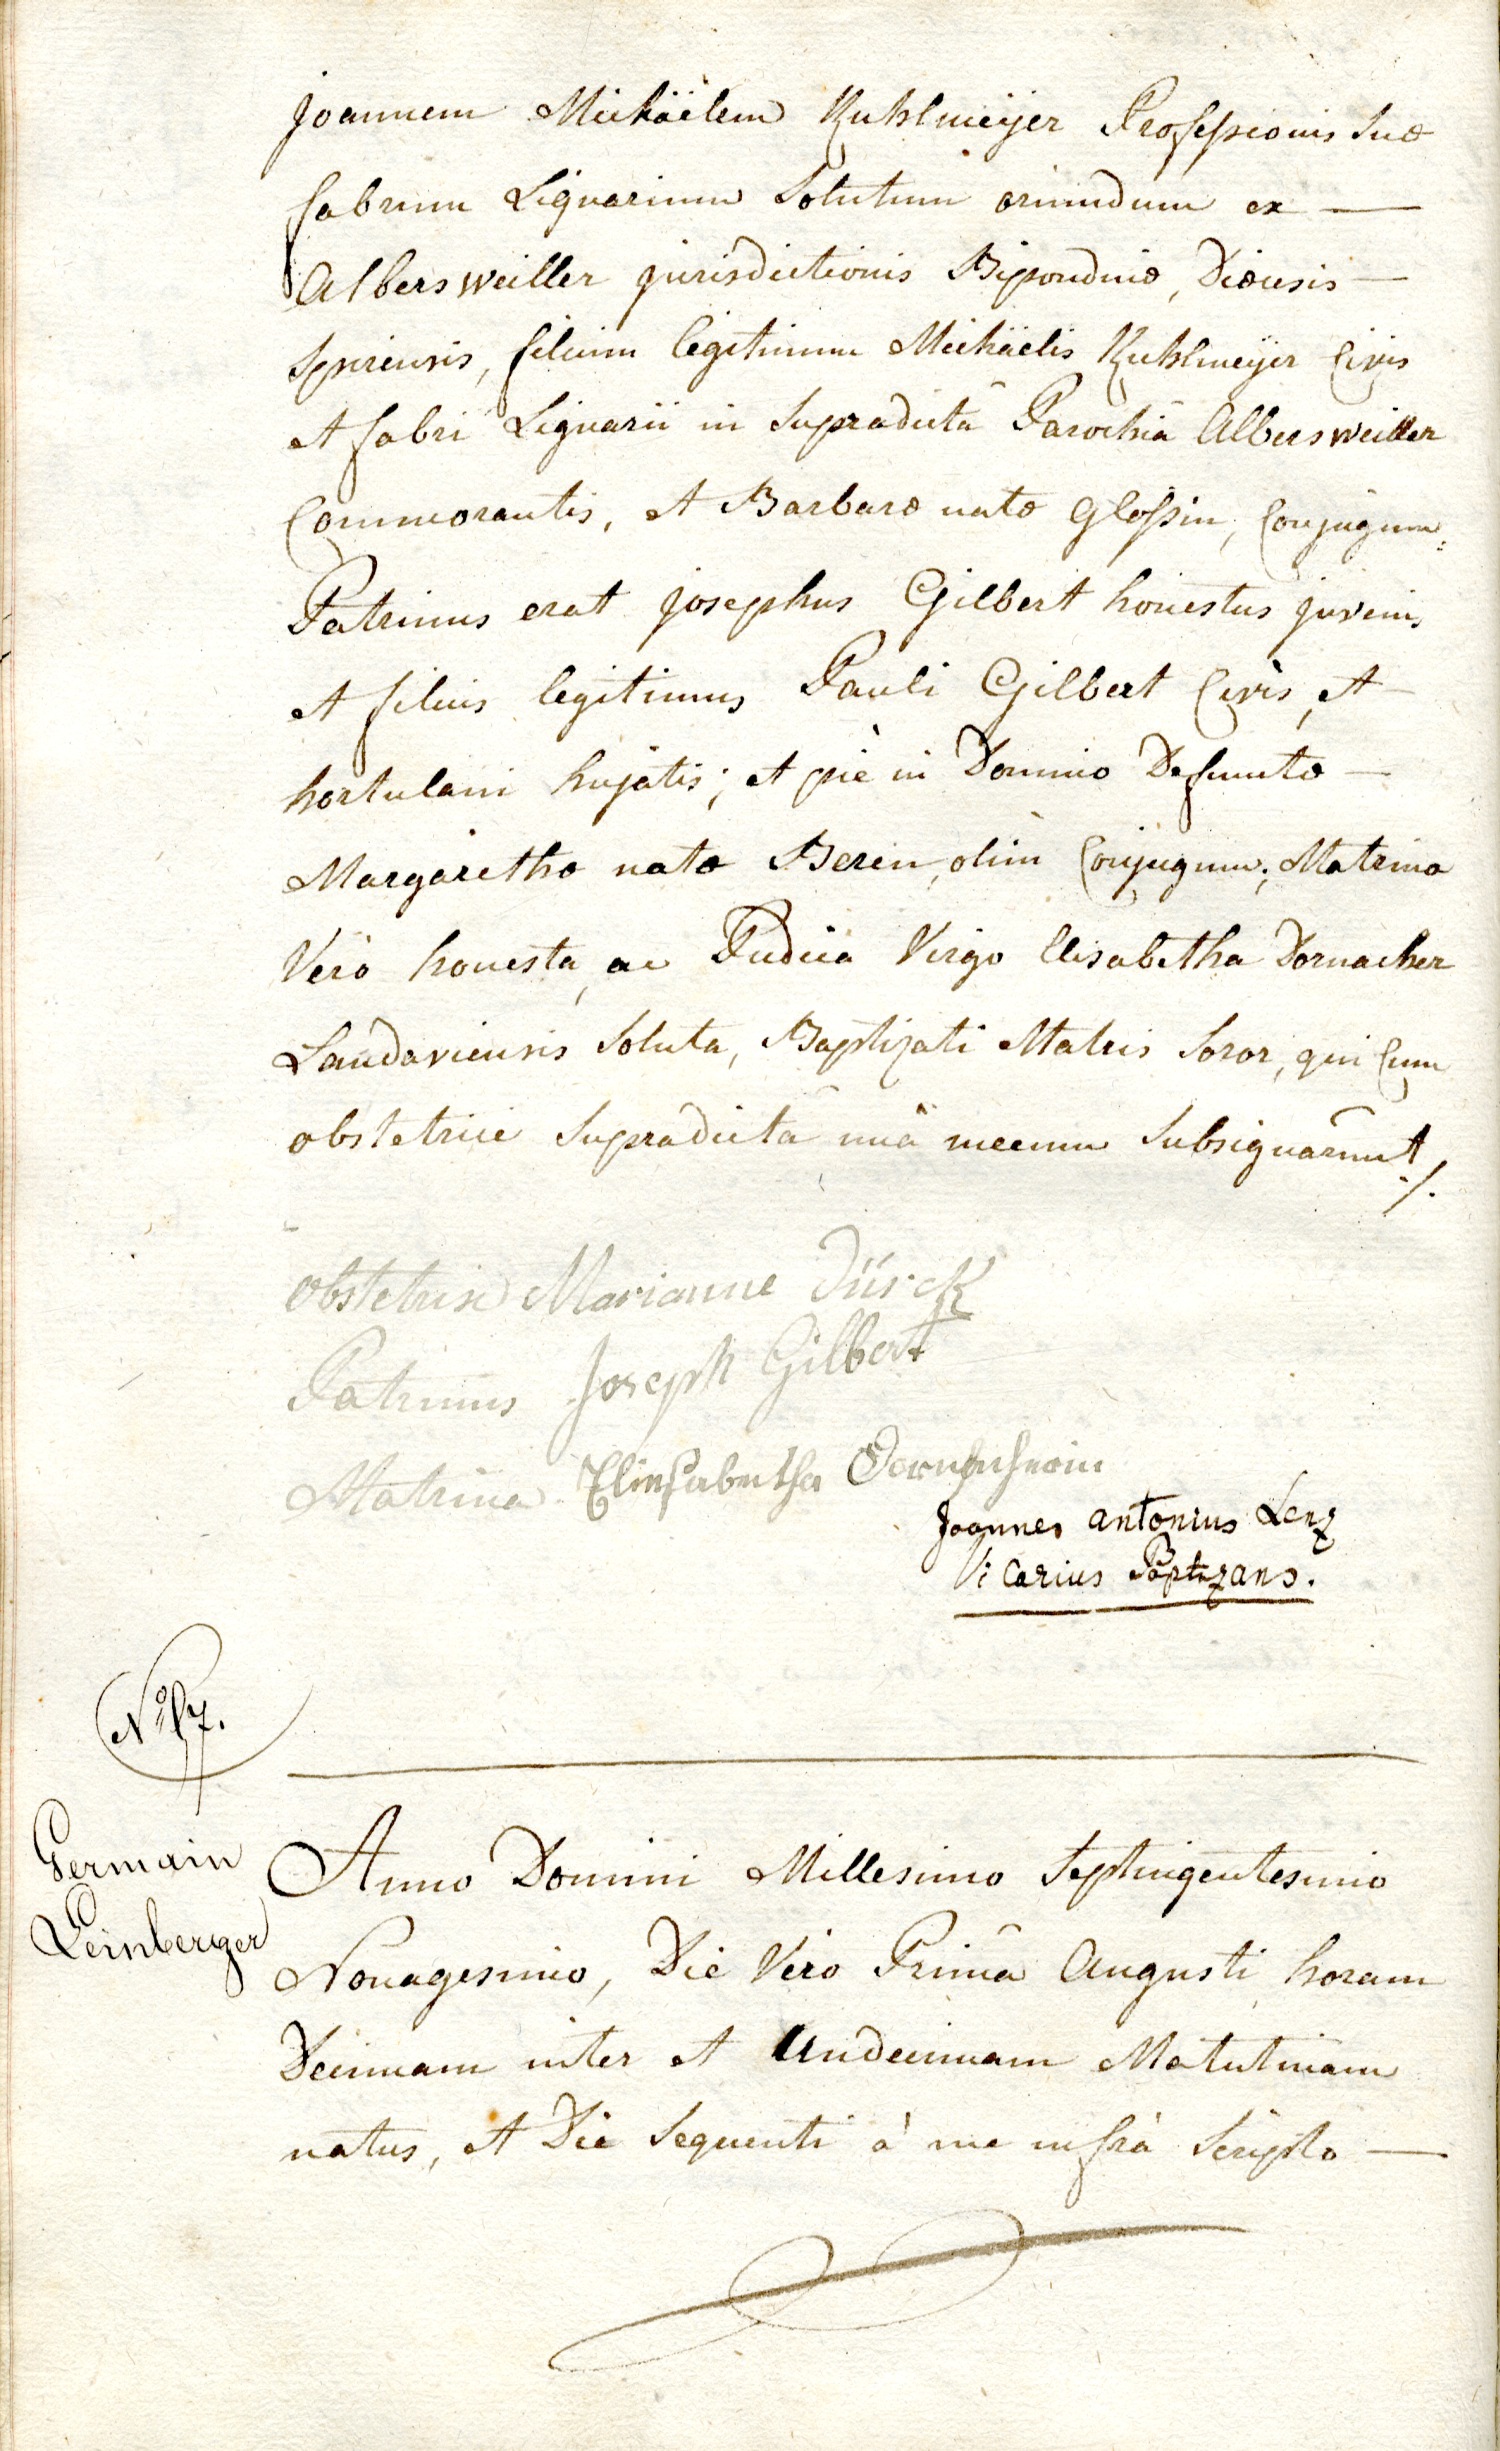 Joannem Michäelem Kuhlmeijer Professionis suæ
fabrum Lignarium Solutum oriundum ex —
Albersweiller jurisdictionis Bipondinæ, Diœcesis —
Spirensis, filium legitimum Michäelis Kuhlmeijer Civis
et fabri Lignarii in supradictâ Parochiâ Albersweiller
Commorantis, et Barbaræ natæ Glossin, Conjugum.
Patrinus erat josephus Gilbert honestus juvenis
et filius legitimus Pauli Gilbert Civis, et —
hortulani hujatis; et piè in Domino Defunctæ —
Margarethæ natæ Beren, olim Conjugum; Matrina
Verò honesta, ac Pudica Virgo Elisabetha Dornacher
Landaviensis Soluta, Baptizati Matris Soror, qui Cum
obstetrice supradictâ unà mecum subsignârunt ./.
Obstetrix Marianne Dürck
Patrinus Joseph Gilbert
Matrina Elinsabetha
Joannes antonius Lenz
Vicarius Baptizans.
Nº 87.
Germain
Leinberger
Anno Domini Millesimo Septingentesimo
Nonagesimo, Die Vero Primâ Augusti horam
Decimam inter et Undecimam Matutinam
natus, et Die Sequenti à me infrà Scripto —